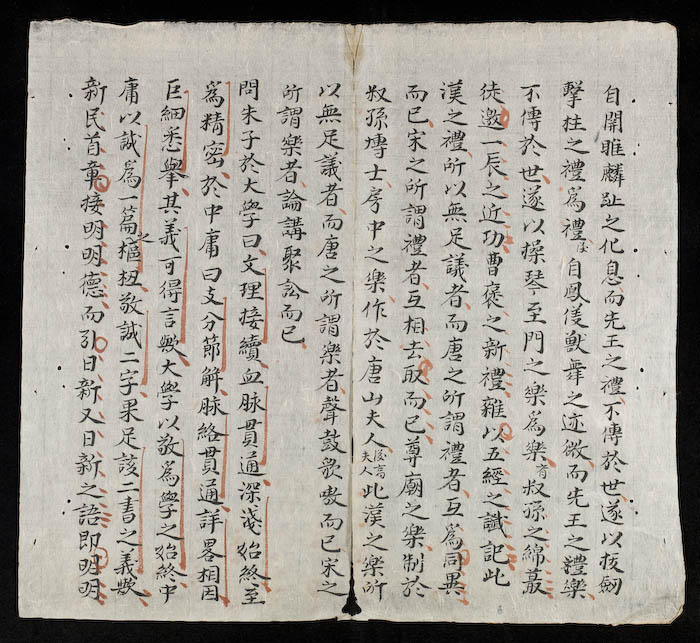 自關雎麟趾之化息而先王之禮不傳於世遂以拔劒
擊柱之禮爲禮 自鳳儀獸舞之迹微而先王之禮樂
不傳於世遂以操琴至門之樂爲樂 叔孫之綿蕞
徒邀一辰之近功曹褒之新禮雜以五經之讖記此
漢之禮所以無足議者而唐之所謂禮者互爲同異
而已宋之所謂禮者互相去取而已尊廟之樂制於
叔孫愽士房中之樂作於唐山夫人後高夫人此漢之樂所
以無足議者而唐之所謂樂者聲鼓歌嗷而已宋之
所謂樂者論講聚訟而已
問朱子於大學曰文理接續血脉貫通深淺始終至
爲精密於中庸曰支分節解脉絡貫通詳畧相因
巨細悉擧其義可得言歟大學以敬爲學之始終中
庸以誠爲一篇之樞杻敬誠二字果足該二書之義歟
新民首章接明明德而引日新又日新之語即明明